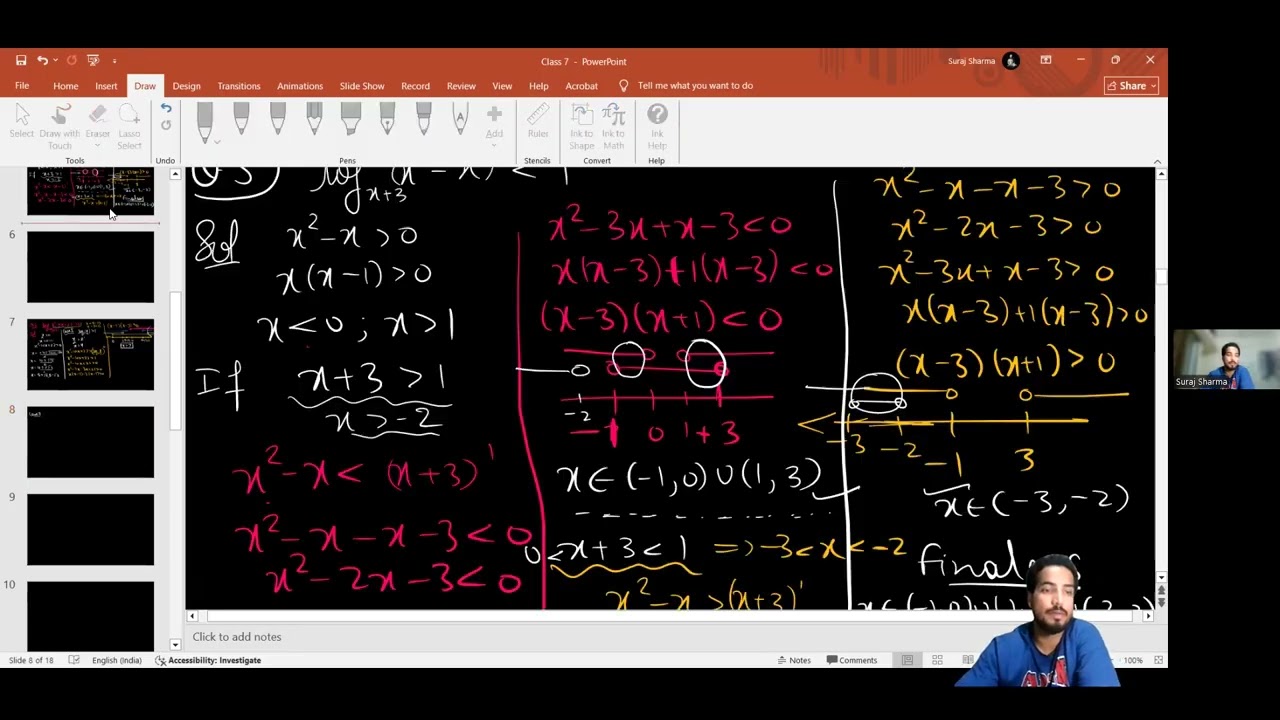 Class 7 - PowerPoint
Suraj Sharma
File Home Insert Draw Design Transitions Animations Slide Show Record Review View Help Acrobat Tell me what you want to do
Share
Select
Draw with Touch
Eraser
Lasso Select
Add
Ruler
Ink to Shape
Ink to Math
Ink to Help
Tools
Undo
Pens
Stencils
Convert
Help
6
7
8
9
10
Sol
x² - x > 0
x(x-1) > 0
x < 0 ; x > 1
If x+3 > 1
x > -2
x² - x < (x+3)¹
x² - x - x - 3 < 0
x² - 2x - 3 < 0
x² - 3x + x - 3 < 0
x(x-3) + 1(x-3) < 0
(x-3)(x+1) < 0
-2
-1 0 1 + 3
x ∈ (-1,0) ∪ (1,3)
0 < x+3 < 1 => -3 < x < -2
x² - x > (x+3)¹
x² - x - x - 3 > 0
x² - 2x - 3 > 0
x² - 3x + x - 3 > 0
x(x-3) + 1(x-3) > 0
(x-3)(x+1) > 0
-3 -2 -1 3
x ∈ (-3,-2)
Suraj Sharma
Click to add notes
Slide 8 of 18
English (India)
Accessibility: Investigate
Notes
Comments
100%